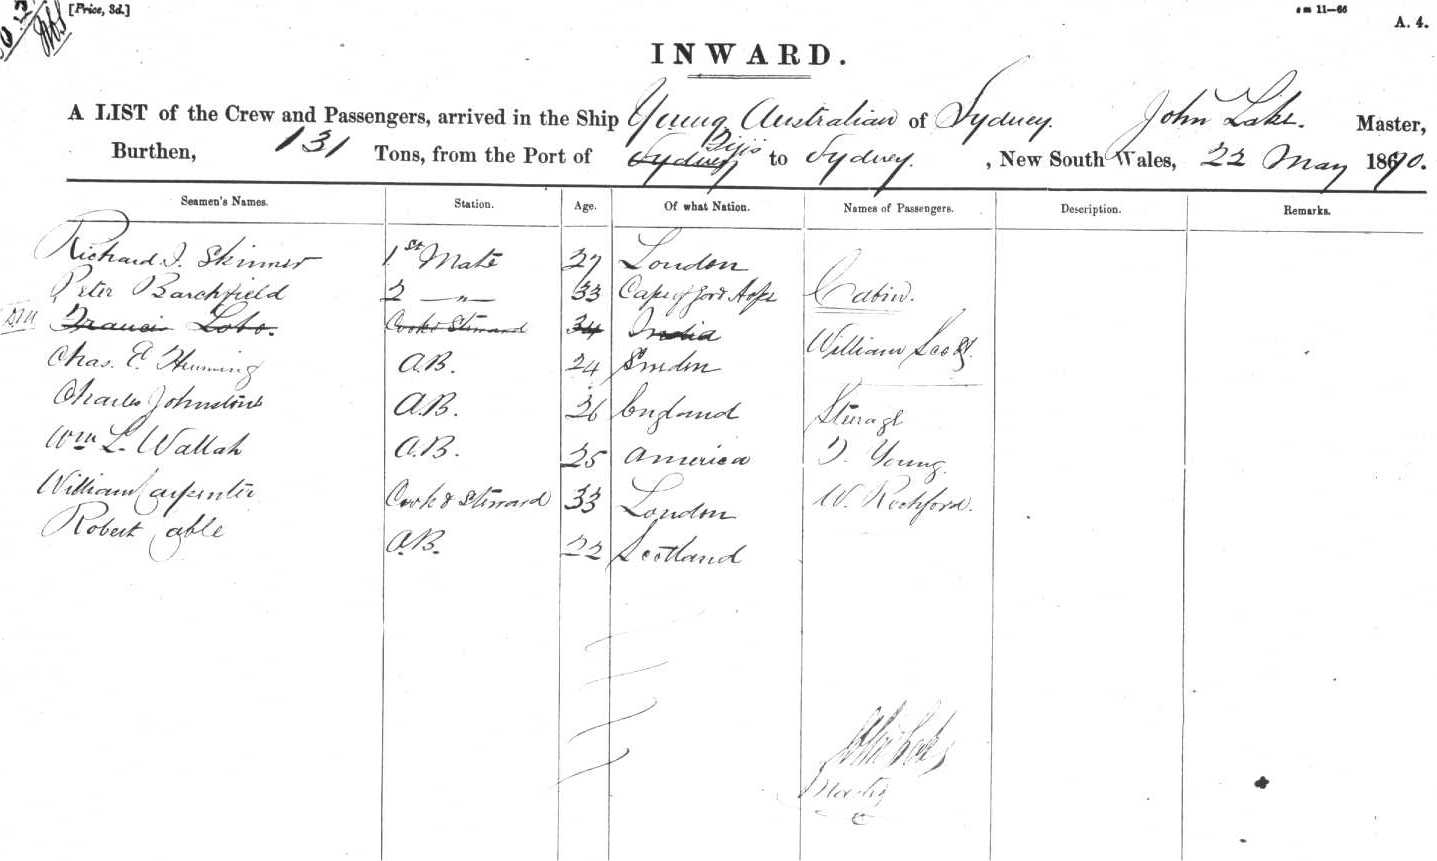 [Price, 3d.]
A. 4.
INWARD.
A LIST of the Crew and Passengers, arrived in the Ship Young Australian of Sydney. John Lake. Master,
Burthen, 131 Tons, from the Port of Sydney Fijis to Sydney. , New South Wales, 22 May 1870.
Seamen's Names. Station. Age. Of what Nation. Names of Passengers. Description. Remarks.
Richard J. Skinner 1st Mate 27 London
Peter Barchfield 2 — " — 33 Cape of Good Hope Cabin.
Francis Lobo. Cook & Steward 34 India
William Scott.
Chas. E. Heming A.B. 24 Sweden
Charles Johnstone A.B. 26 England Steerage
Wm L. Wallah A.B. 25 America T. Young.
William Carpenter Cook & Steward 33 London W. Rochford.
Robert Able A.B. 22 Scotland
John Lake
Master